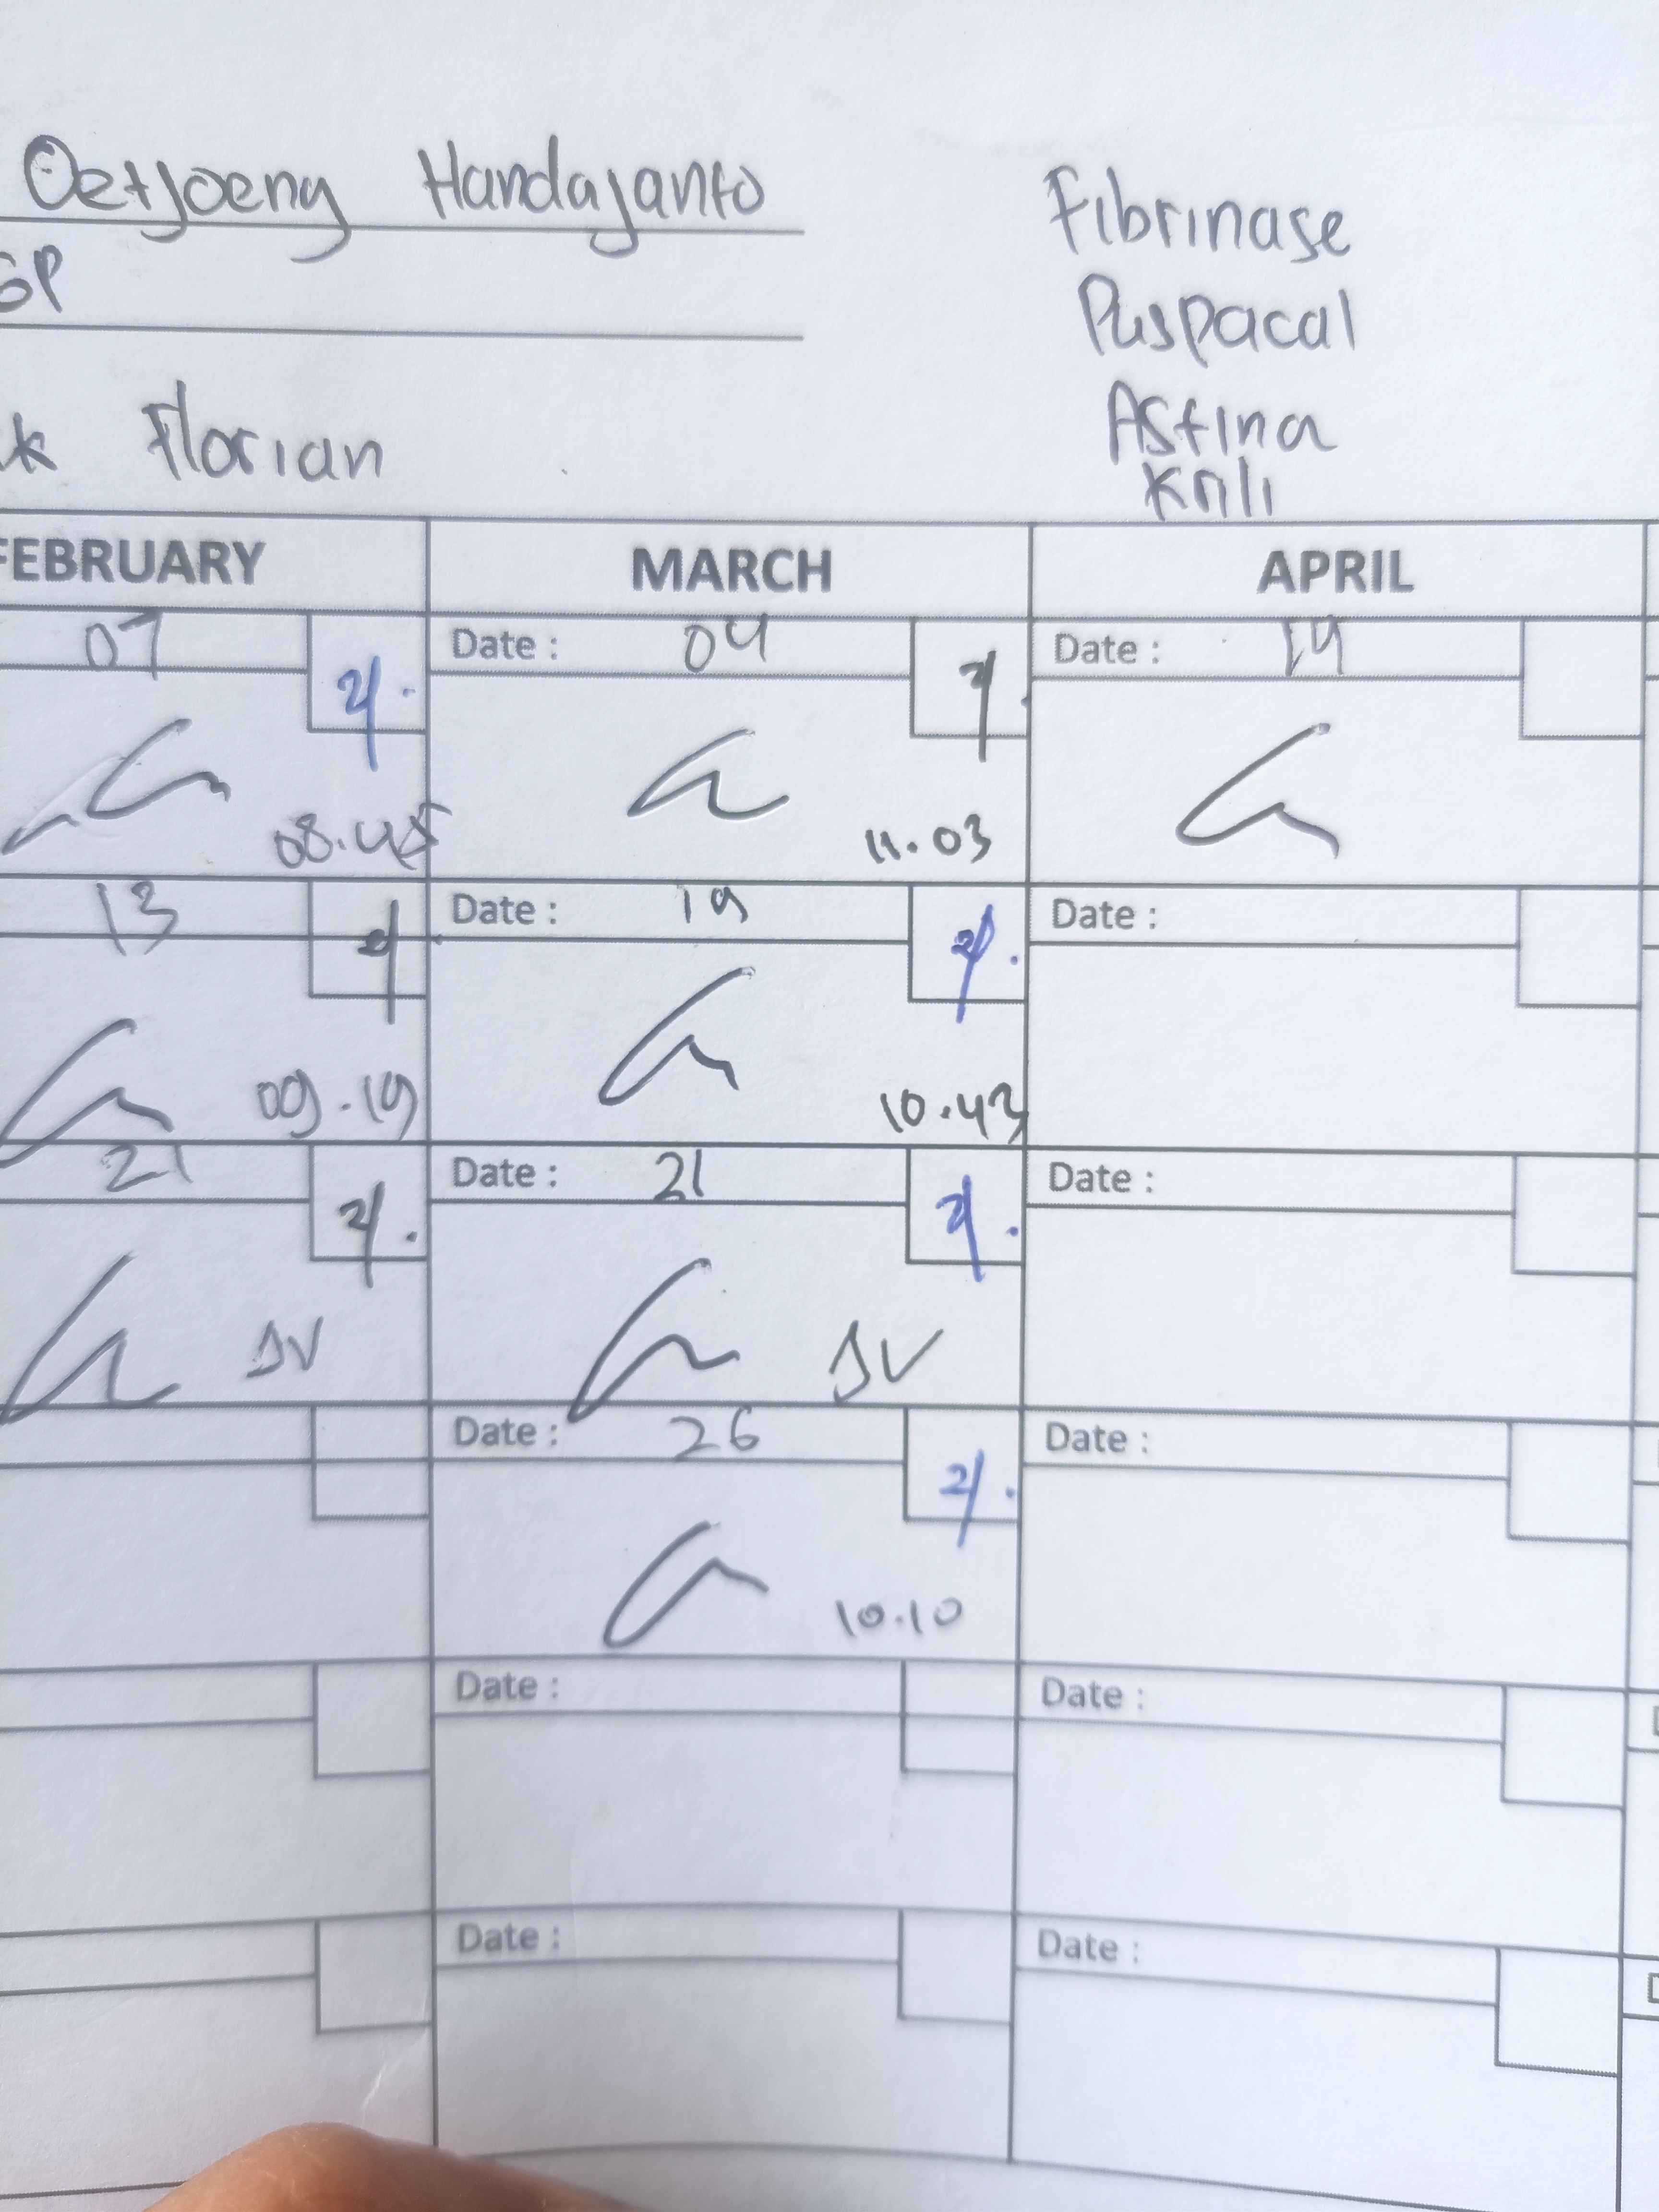 Oetjoeng Handajanto
GP
k Florian
Fibrinase
Puspacal
Astina
Krili
FEBRUARY MARCH APRIL
07 Date : 04 Date : 19
08.45 11.03
13 Date : 19 Date :
09.19 10.43
21 Date : 21 Date :
JV JV
Date : 26 Date :
10.10
Date : Date :
Date : Date :